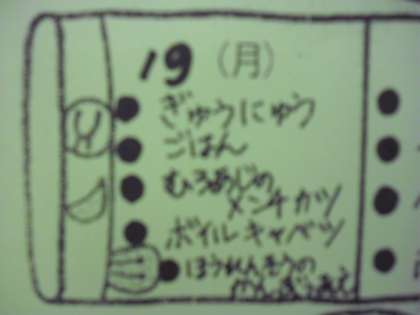 19 (月)
ぎゅうにゅう
ごはん
むろあじの
メンチカツ
ボイルキャベツ
ほうれんそうの